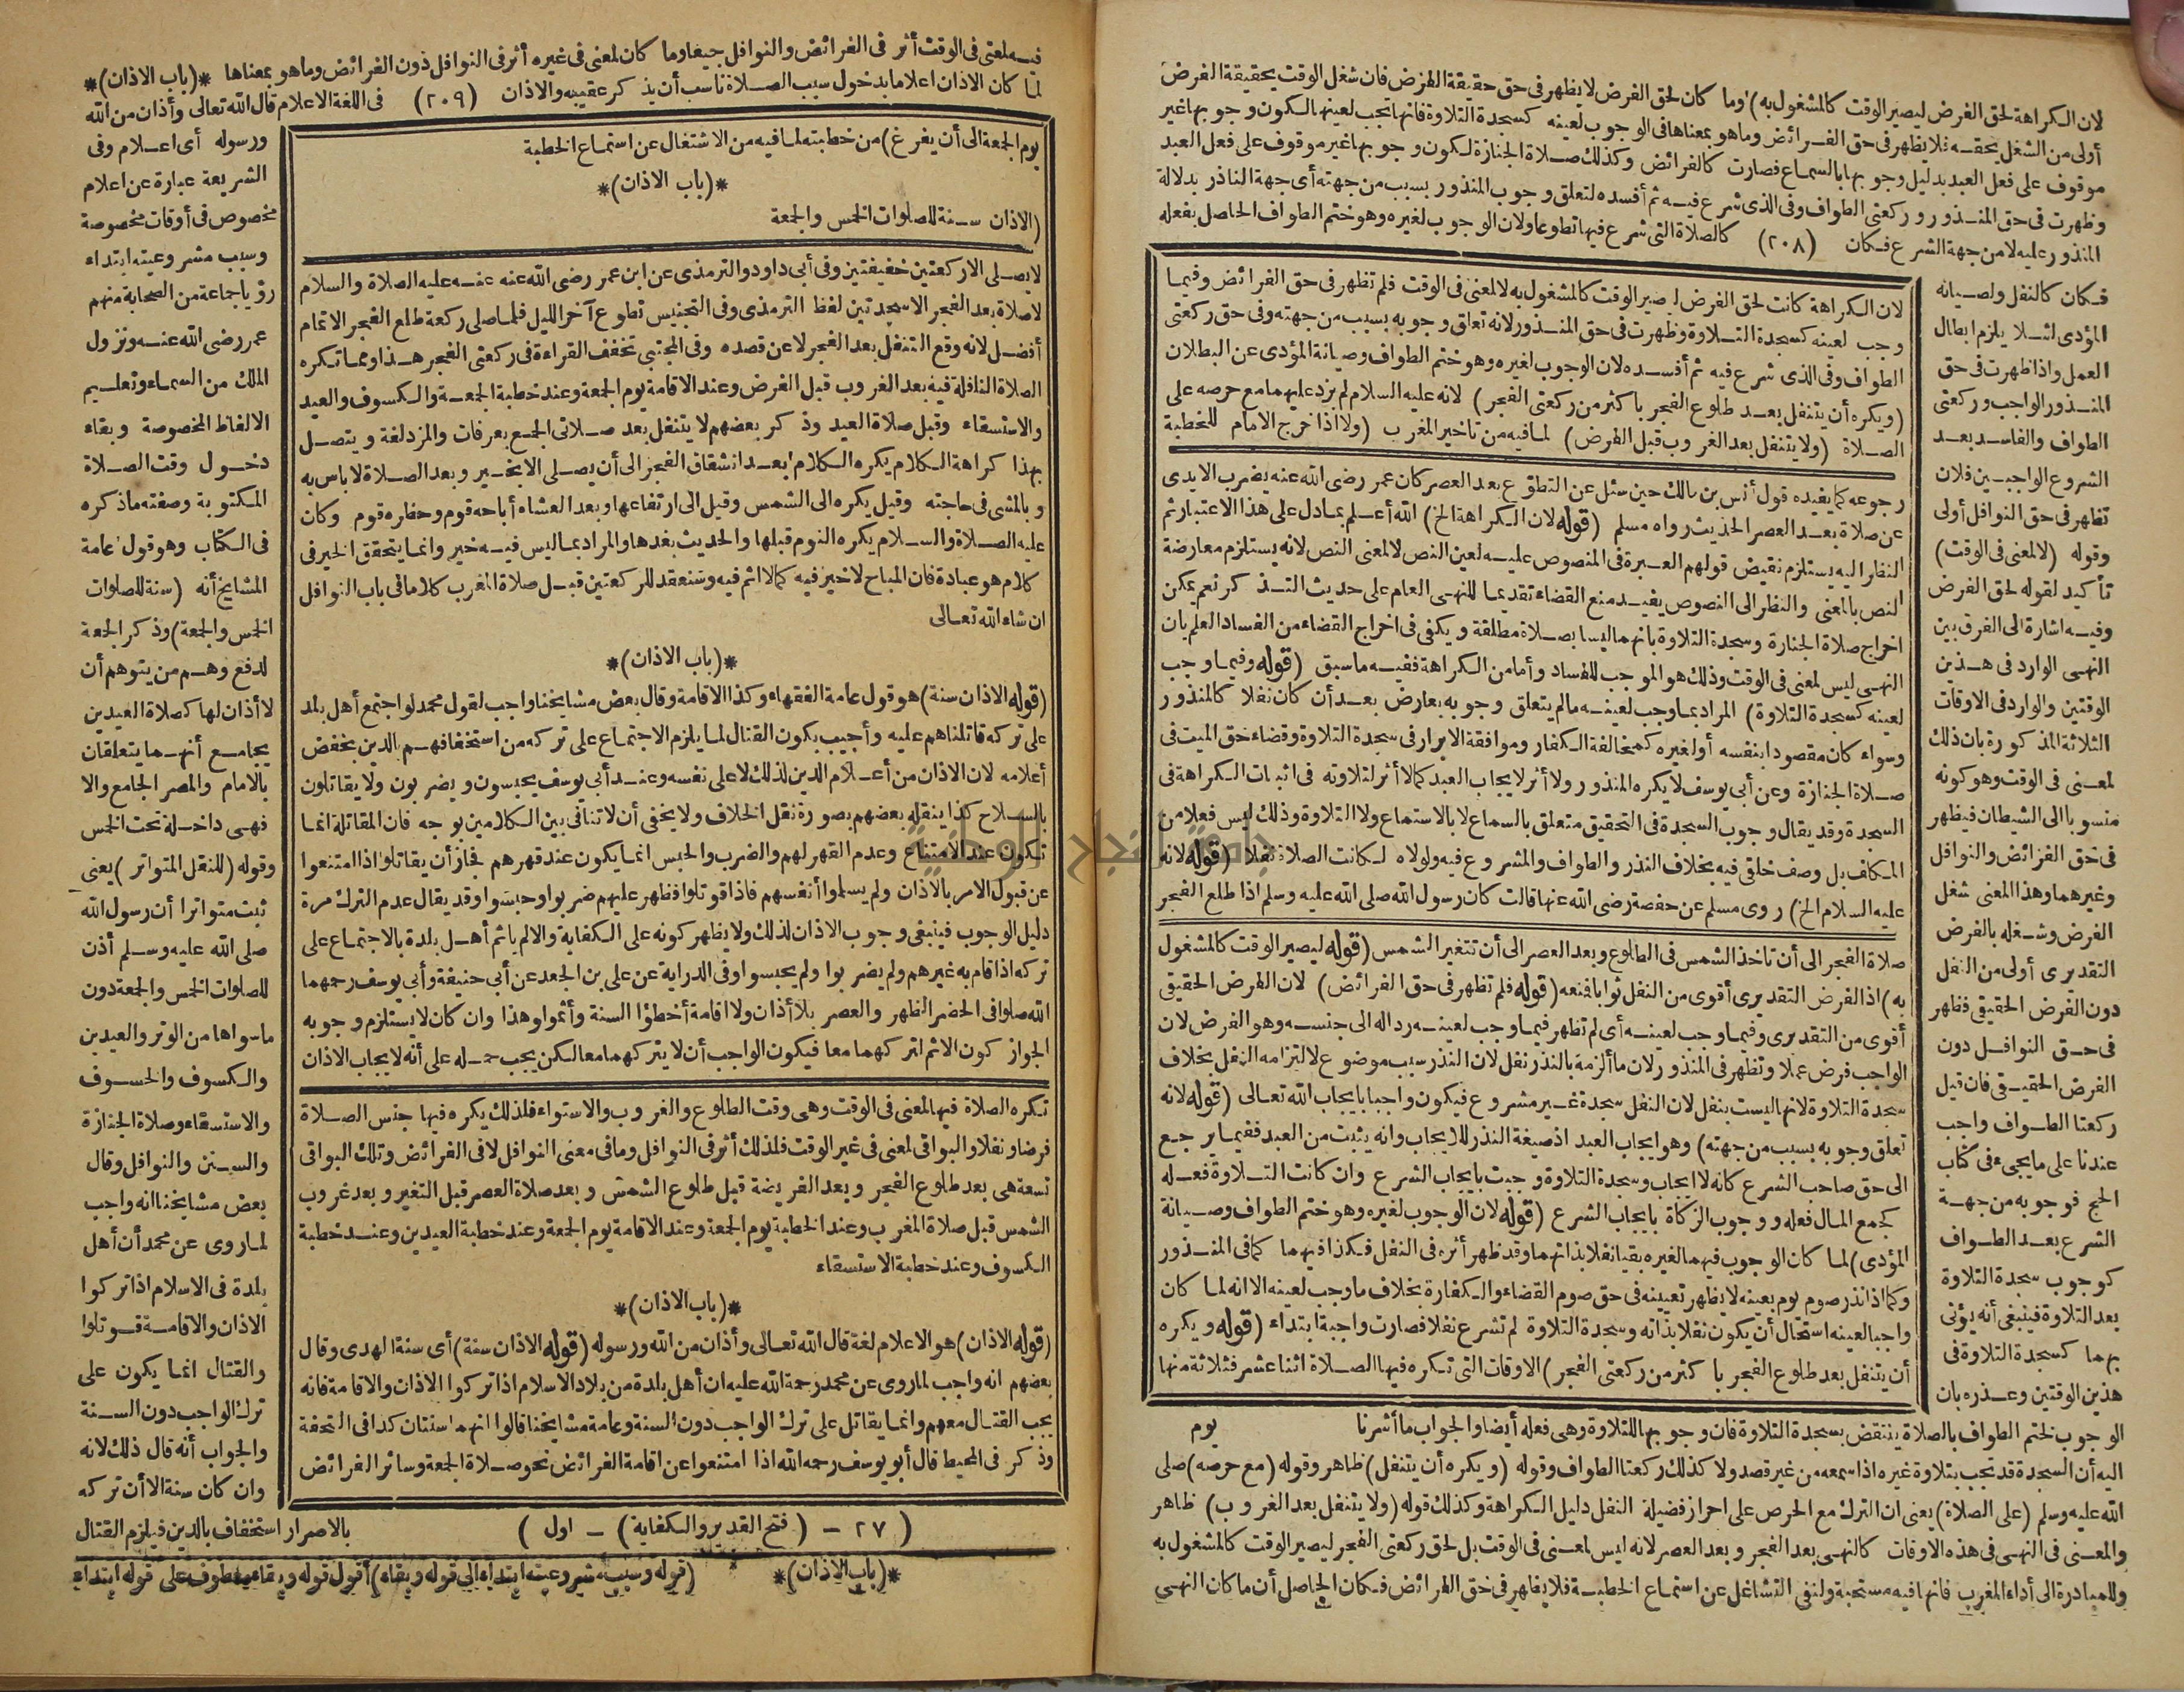 لان الكراهة لحق الفرض ليصير الوقت كالمشغول به) وما كان لحق الفرض لا يظهر في حق حقيقة الفرض فان شغل الوقت بحقيقة الفرض
أولى من الشغل بحقه فلا يظهر في حق الفرائض وما هو بمعناها في الوجوب لعينه كسجدة التلاوة فانها تجب لعينها لكون وجوبها غير
موقوف على فعل العبد بدليل وجوبها بالسماع فصارت كالفرائض وكذلك صلاة الجنازة لكون وجوبها غير موقوف على فعل العبد
وظهرت في حق المنذور وركعتي الطواف وفي الذي شرع فيه ثم أفسده لتعلق وجوب المنذور بسبب من جهته أي جهة الناذر بدلالة
المنذور عليه لا من جهة الشرع فكان (٢٠٨) كالصلاة التي شرع فيها تطوعا ولان الوجوب لغيره وهو ختم الطواف الحاصل بفعله
فكان كالنفل ولصيانه
المؤدى لئلا يلزم ابطال
العمل واذا ظهرت في حق
المنذور الواجب وركعتي
الطواف والفاسد بعد
الشروع الواجبين فلان
تظهر في حق النوافل أولى
وقوله (لا لمعنى في الوقت)
تأكيد لقوله لحق الفرض
وفيه اشارة الى الفرق بين
النهى الوارد في هذين
الوقتين والوارد في الاوقات
الثلاثة المذكورة بان ذلك
لمعنى في الوقت وهو كونه
منسوبا الى الشيطان فيظهر
في حق الفرائض والنوافل
وغيرهما وهذا المعنى شغل
الفرض وشغله بالفرض
التقديرى أولى من النفل
دون الفرض الحقيقى فظهر
في حق النوافل دون
الفرض الحقيقى فان قيل
ركعتا الطواف واجب
عندنا على ما يجيء في كتاب
الحج فوجوبه من جهة
الشرع بعد الطواف
كوجوب سجدة التلاوة
بعد التلاوة فينبغي أنه يؤتى
بهما كسجدة التلاوة في
هذين الوقتين وعذره بان
لان الكراهة كانت لحق الفرض ليصير الوقت كالمشغول به لا لمعنى في الوقت فلم تظهر في حق الفرائض وفيما
وجب لعينه كسجدة التلاوة وظهرت في حق المنذور لانه تعلق وجوبه بسبب من جهته وفي حق ركعتي
الطواف وفي الذي شرع فيه ثم أفسده لان الوجوب لغيره وهو ختم الطواف وصيانة المؤدى عن البطلان
(ويكره أن يتنفل بعد طلوع الفجر باكثر من ركعتي الفجر) لانه عليه السلام لم يزد عليهما مع حرصه على
الصلاة (ولا يتنفل بعد الغروب قبل الفرض) لما فيه من تاخير المغرب (ولا اذا خرج الامام للخطبة
رجوعه كما يفيده قول أنس بن مالك حين سئل عن التطوع بعد العصر كان عمر رضى الله عنه يضرب الايدى
عن صلاة بعد العصر الحديث رواه مسلم (قوله لان الكراهة الخ) الله أعلم بما دل على هذا الاعتبار ثم
النظر اليه يستلزم نقيض قولهم العبرة في المنصوص عليه لعين النص لا لمعنى النص لانه يستلزم معارضة
النص بالمعنى والنظر الى النصوص يفيد منع القضاء تقديما للنهى العام على حديث التذكر نعم يمكن
اخراج صلاة الجنازة وسجدة التلاوة بانهما ليسا بصلاة مطلقة ويكفى في اخراج القضاء من الفساد العلم بان
النهى ليس لمعنى في الوقت وذلك هو الموجب للفساد وأما من الكراهة ففيه ما سبق (قوله وفيما وجب
لعينه كسجدة التلاوة) المراد بما وجب لعينه ما لم يتعلق وجوبه بعارض بعد أن كان نفلا كالمنذور
وسواء كان مقصودا بنفسه أو لغيره كمخالفة الكفار وموافقة الابرار في سجدة التلاوة وقضاء حق الميت في
صلاة الجنازة وعن أبي يوسف لا يكره المنذور ولا أثر لايجاب العبد كما لا أثر لتلاوته في اثبات الكراهة في
السجدة وقد يقال وجوب السجدة في التحقيق متعلق بالسماع لا بالاستماع ولا التلاوة وذلك ليس فعلا من
المكلف بل وصف خلقى فيه بخلاف النذر والطواف والمشروع فيه ولولاه لكانت الصلاة نفلا (قوله لانه
عليه السلام الخ) روى مسلم عن حفصة رضى الله عنها قالت كان رسول الله صلى الله عليه وسلم اذا طلع الفجر
صلاة الفجر الى أن تاخذ الشمس في الطلوع وبعد العصر الى أن تتغير الشمس (قوله ليصير الوقت كالمشغول
به) اذ الفرض التقديرى أقوى من النفل ثوابا فمنعه (قوله فلم تظهر في حق الفرائض) لان الفرض الحقيقى
أقوى من التقديرى وفيما وجب لعينه أى لم تظهر فيما وجب لعينه رد اله الى جنسه وهو الفرض لان
الواجب فرض عملا وتظهر في المنذور لان ما ألزمه بالنذر نفل لان النذر سبب موضوع لالتزامه النفل بخلاف
سجدة التلاوة لانها ليست بنفل لان النفل سجدة غير مشروع فيكون واجبا بايجاب الله تعالى (قوله لانه
تعلق وجوبه بسبب من جهته) وهو ايجاب العبد اذ صيغة النذر للايجاب وانه يثبت من العبد فقيما يرجع
الى حق صاحب الشرع كانه لا ايجاب وسجدة التلاوة وجبت بايجاب الشرع وان كانت التلاوة فعله
كجمع المال فعله ووجوب الزكاة بايجاب الشرع (قوله لان الوجوب لغيره وهو ختم الطواف وصيانة
المؤدى) لما كان الوجوب فيهما لغيره بقيا نفلا بذاتهما وقد ظهر أثره في النفل فكذا فيهما كما في المنذور
وكما اذا نذر صوم يوم بعينه لا يظهر تعيينه في حق صوم القضاء والكفارة بخلاف ما وجب لعينه الا انه لما كان
واجبا لعينه استحال أن يكون نفلا بذاته وسجدة التلاوة لم تشرع نفلا فصارت واجبة ابتداء (قوله ويكره
أن يتنفل بعد طلوع الفجر باكثر من ركعتي الفجر) الاوقات التي تكره فيها الصلاة اثنا عشر فثلاثة منها
يوم
الوجوب لختم الطواف بالصلاة ينتقض بسجدة التلاوة فان وجوبها للتلاوة وهى فعله أيضا والجواب ما أشرنا
اليه أن السجدة قد تجب بتلاوة غيره اذا سمعه من غير قصد ولا كذلك ركعتا الطواف وقوله (ويكره أن يتنفل) ظاهر وقوله (مع حرصه) صلى
الله عليه وسلم (على الصلاة) يعنى ان الترك مع الحرص على احراز فضيلة النفل دليل الكراهة وكذلك قوله (ولا يتنفل بعد الغروب) ظاهر
والمعنى في النهى في هذه الاوقات كالنهى بعد الفجر وبعد العصر لانه ليس لمعنى في الوقت بل لحق ركعتي الفجر ليصير الوقت كالمشغول به
وللمبادرة الى أداء المغرب فانها فيه مستحبة ولنفى التشاغل عن استماع الخطبة فلا يظهر في حق الفرائض فكان الحاصل أن ما كان النهى
فيه لمعنى في الوقت أثر في الفرائض والنوافل جميعا وما كان لمعنى في غيره أثر في النوافل دون الفرائض وما هو بمعناها *(باب الاذان)*
لما كان الاذان اعلاما بدخول سبب الصلاة ناسب أن يذكر عقيبه والاذان (٢٠٩) في اللغة الاعلام قال الله تعالى وأذان من الله
ورسوله أى اعلام وفى
الشريعة عبارة عن اعلام
مخصوص في أوقات مخصوصة
وسبب مشروعيته ابتداء
رؤيا جماعة من الصحابة منهم
عمر رضى الله عنه ونزول
الملك من السماء وتعليم
الالفاظ المخصوصة وبقاء
دخول وقت الصلاة
المكتوبة وصفته ما ذكره
في الكتاب وهو قول عامة
المشايخ أنه (سنة للصلوات
الخمس والجمعة) وذكر الجمعة
لدفع وهم من يتوهم أن
لا أذان لها كصلاة العيدين
بجامع أنهما يتعلقان
بالامام والمصر الجامع والا
فهى داخلة تحت الخمس
وقوله (للنقل المتواتر) يعنى
ثبت متواترا أن رسول الله
صلى الله عليه وسلم أذن
للصلوات الخمس والجمعة دون
ما سواها من الوتر والعيدين
والكسوف والخسوف
والاستسقاء وصلاة الجنازة
والسنن والنوافل وقال
بعض مشايخنا انه واجب
لما روى عن محمد أن أهل
بلدة في الاسلام اذا تركوا
الاذان والاقامة قوتلوا
والقتال انما يكون على
ترك الواجب دون السنة
والجواب أنه قال ذلك لانه
وان كان سنة الا أن تركه
بالاصرار استخفاف بالدين فيلزم القتال
يوم الجمعة الى أن يفرغ) من خطبته لما فيه من الاشتغال عن استماع الخطبة
*(باب الاذان)*
(الاذان سنة للصلوات الخمس والجمعة
لا يصلى الا ركعتين خفيفتين وفى أبى داود والترمذى عن ابن عمر رضى الله عنه عنه عليه الصلاة والسلام
لا صلاة بعد الفجر الا سجدتين لفظ الترمذى وفى التجنيس تطوع آخر الليل فلما صلى ركعة طلع الفجر الاتمام
أفضل لانه وقع التنفل بعد الفجر لا عن قصده وفى المجتبى تخفف القراءة في ركعتي الفجر هذا ومما تكره
الصلاة النافلة فيه بعد الغروب قبل الفرض وعند الاقامة يوم الجمعة وعند خطبة الجمعة والكسوف والعيد
والاستسقاء وقبل صلاة العيد وذكر بعضهم لا يتنفل بعد صلاتى الجمع بعرفات والمزدلفة ويتصل
بهذا كراهة الكلام يكره الكلام بعد انشقاق الفجر الى أن يصلى الا بخير وبعد الصلاة لا باس به
وبالمشى في حاجته وقيل يكره الى الشمس وقيل الى ارتفاعها وبعد العشاء أباحه قوم وحظره قوم وكان
عليه الصلاة والسلام يكره النوم قبلها والحديث بعدها والمراد بما ليس فيه خير وانما يتحقق الخير في
كلام هو عبادة فان المباح لا خير فيه كما لا اثم فيه وسنعقد للركعتين قبل صلاة المغرب كلاما في باب النوافل
ان شاء الله تعالى
*(باب الاذان)*
(قوله الاذان سنة) هو قول عامة الفقهاء وكذا الاقامة وقال بعض مشايخنا واجب لقول محمد لو اجتمع أهل بلد
على تركه قاتلناهم عليه وأجيب بكون القتال لما يلزم الاجتماع على تركه من استخفافهم الدين بخفض
أعلامه لان الاذان من أعلام الدين لذلك لا على نفسه وعند أبى يوسف يحبسون ويضربون ولا يقاتلون
بالسلاح كذا ينقله بعضهم بصورة نقل الخلاف ولا يخفى أن لا تنافى بين الكلامين بوجه فان المقاتلة انما
تكون عند الامتناع وعدم القهر لهم والضرب والحبس انما يكون عند قهرهم فجاز أن يقاتلوا اذا امتنعوا
عن قبول الامر بالاذان ولم يسلموا أنفسهم فاذا قوتلوا فظهر عليهم ضربوا وحبسوا وقد يقال عدم الترك مرة
دليل الوجوب فينبغي وجوب الاذان لذلك ولا يظهر كونه على الكفاية والالم ياثم أهل بلدة بالاجتماع على
تركه اذا قام به غيرهم ولم يضربوا ولم يحبسوا وفى الدراية عن على بن الجعد عن أبى حنيفة وأبى يوسف رحمهما
الله صلوا في الحضر الظهر والعصر بلا أذان ولا اقامة أخطؤا السنة وأثموا وهذا وان كان لا يستلزم وجوبه
لجواز كون الاثم لتركهما معا فيكون الواجب أن لا يتركهما معا لكن يجب حمله على أنه لايجاب الاذان
تكره الصلاة فيها لمعنى في الوقت وهى وقت الطلوع والغروب والاستواء فلذلك يكره فيها جنس الصلاة
فرضا ونفلا والبواقى لمعنى في غير الوقت فلذلك أثر في النوافل وما في معنى النوافل لا في الفرائض وتلك البواقى
تسعة هى بعد طلوع الفجر وبعد الفريضة قبل طلوع الشمس وبعد صلاة العصر قبل التغير وبعد غروب
الشمس قبل صلاة المغرب وعند الخطبة يوم الجمعة وعند الاقامة يوم الجمعة وعند خطبة العيدين وعند خطبة
الكسوف وعند خطبة الاستسقاء
*(باب الاذان)*
(قوله الاذان) هو الاعلام لغة قال الله تعالى وأذان من الله ورسوله (قوله الاذان سنة) أى سنة الهدى وقال
بعضهم انه واجب لما روى عن محمد رحمة الله عليه ان أهل بلدة من بلاد الاسلام اذا تركوا الاذان والاقامة فانه
يجب القتال معهم وانما يقاتل على ترك الواجب دون السنة وعامة مشايخنا قالوا انهما سنتان كذا في التحفة
وذكر في المحيط قال أبو يوسف رحمه الله اذا امتنعوا عن اقامة الفرائض نحو صلاة الجمعة وسائر الفرائض
(٢٧ - (فتح القدير والكفاية) - اول)
*(باب الاذان)* (قوله وسبب مشروعيته ابتداء الى قوله وبقاء) أقول قوله وبقاء معطوف على قوله ابتداء
جامعة النجاح الوطنية